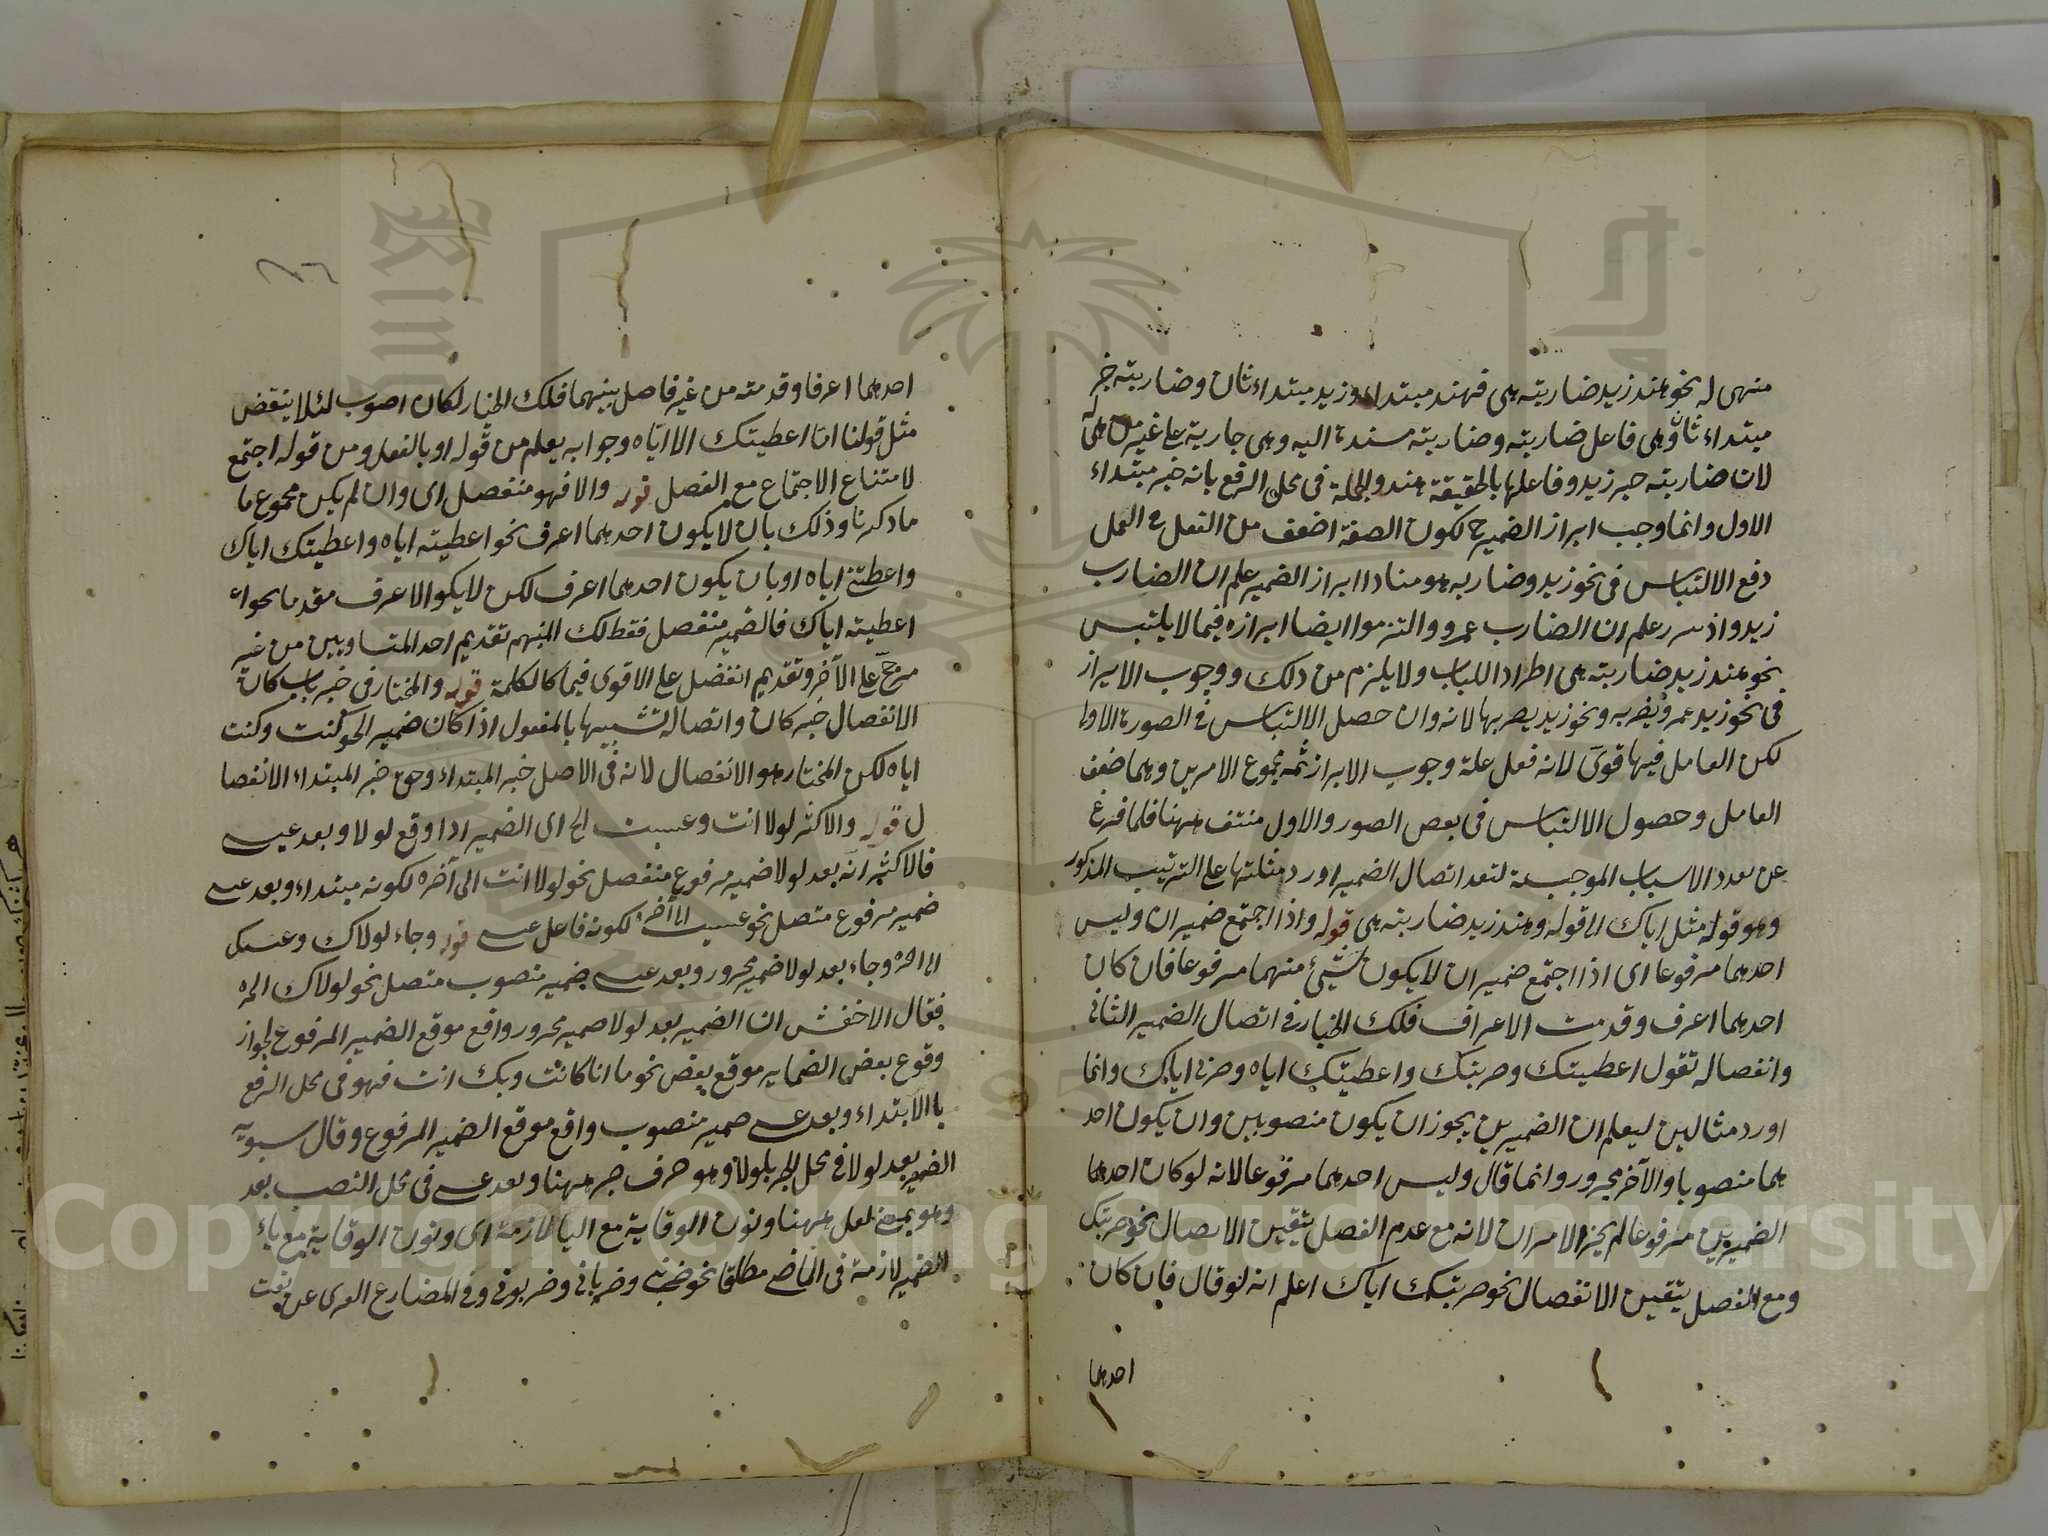 منهى له نحو هند زيد ضاربته هى فهند مبتداء وزيد مبتداء ثان وضاربته خبر
مبتداء ثان وهى فاعل ضاربته وضاربته مسندة اليه وهى جارية على غير من هى له
لان ضاربته خبر زيد وفاعلها بالحقيقة هند والجملة فى محل الرفع بانه خبر مبتداء
الاول وانما وجب ابراز الضمير ح لكون الصفة اضعف من الفعل فى العمل
دفع الالتباس فى نحو زيد وضاربه هو منادا ابراز الضمير علم ان الضارب
زيد واذ علم ان الضارب عمرو والتزموا ايضا ابرازه فيما لا يلتبس
نحو هند زيد ضاربته هى اطرادا للباب ولا يلزم من ذلك ووجوب الابراز
فى نحو زيد عمرو يضربه ونحو زيد يضربها لانه وان حصل الالتباس فى الصورة الاولى
لكن العامل فيها قوى لانه فعل علة وجوب الابراز ثمه مجموع الامرين وهما ضعف
العامل وحصول الالتباس فى بعض الصور والاول منتف ههنا فلما فرغ
عن تعدد الاسباب الموجبة لتعذر اتصال الضمير اورد مثلتها على الترتيب المذكور
وهو قوله مثل اياك الى قوله وهند زيد ضاربته هى قوله واذا اجتمع ضميران وليس
احدهما مرفوعا اى اذا اجتمع ضميران لا يكون شئ منهما مرفوعا فان كان
احدهما اعرف وقدمت الاعراف فلك الخيار فى اتصال الضمير الثانى
وانفصاله تقول اعطيتك وضربتك واعطيتك اياه وضربى اياك وانما
اورد مثالين ليعلم ان الضميرين يجوز ان يكون منصوبين وان يكون احد
هما منصوبا والآخر مجرور وانما قال وليس احدهما مرفوعا لانه لو كان احدهما
الضميرين مرفوعا لم يجز الامران لانه مع عدم الفصل يتعين الاتصال نحو ضربتك
ومع الفصل يتعين الانفصال نحو ضربتك اياك اعلم انه لو قال فان كان
احدهما
احدهما اعرفا وقدمته من غير فاصل بينهما فلك الخيار لكان اصوب لئلا ينقض
مثل قولنا انا اعطيتك الا اياه وجوابه يعلم من قوله او بالفعل ومن قوله اجتمع
لامتناع الاجتماع مع الفصل قوله والا فهو منفصل اى وان لم يكن مجموع ما
ما ذكرنا وذلك بان لا يكون احدهما اعرف نحو اعطيته اياه واعطيتك اياك
واعطتنى اياه او بان يكون احدهما اعرف لكن لا يكو الاعرف مقدما نحواء
اعطيته اياك فالضمير منفصل فقط لك المنهم تقديم احد المتساويين من غير
مرجح على الآخر وتقديم انفصل على الاقوى فيما كالكلمة قوله والمختار فى خبر باب كان
الانفصال خبر كان واتصاله تشبيها بالمفعول اذا كان ضمير الحو كنت وكنت
اياه لكن المختار هو الانفصال لانه فى الاصل خبر المبتداء وحق خبر المبتداء الانفصا
ل قوله والاكثر لولا انت وعسيت الخ اى الضمير اذا وقع لولا وبعد عسى
فالاكثر انه بعد لولا ضمير مرفوع منفصل نحو لولا انت الى آخره لكونه مبتداء وبعد عسى
ضمير مرفوع متصل نحو عسيت الى آخره لكونه فاعل عسى قوله وجاء لولاك وعساك
الى اخره وجاء بعد لولا ضمير مجرور وبعد عسى ضمير منصوب متصل نحو لولاك الى اخره
فقال الاخفش ان الضمير بعد لولا ضمير مجرور واقع موقع الضمير المرفوع لجواز
وقوع بعض الضماير موقع بعض نحو ما انا كانت وبك انت فهو فى محل الرفع
بالابتداء وبعد عسى ضمير منصوب واقع موقع الضمير المرفوع وقال سيبويه
الضمير بعد لولا فى محل الجر بلولا وهو حرف جر ههنا وبعد عسى فى محل النصب بعد
وهو بمعنى لعل ههنا ونون الوقاية مع اليا لازمة اى ونون الوقاية مع ياء
الضمير لازمة فى الماضى مطلقا نحو ضربنى وضربانى وضربونى وفى المضارع العرى عن
Copyright © King Saud University